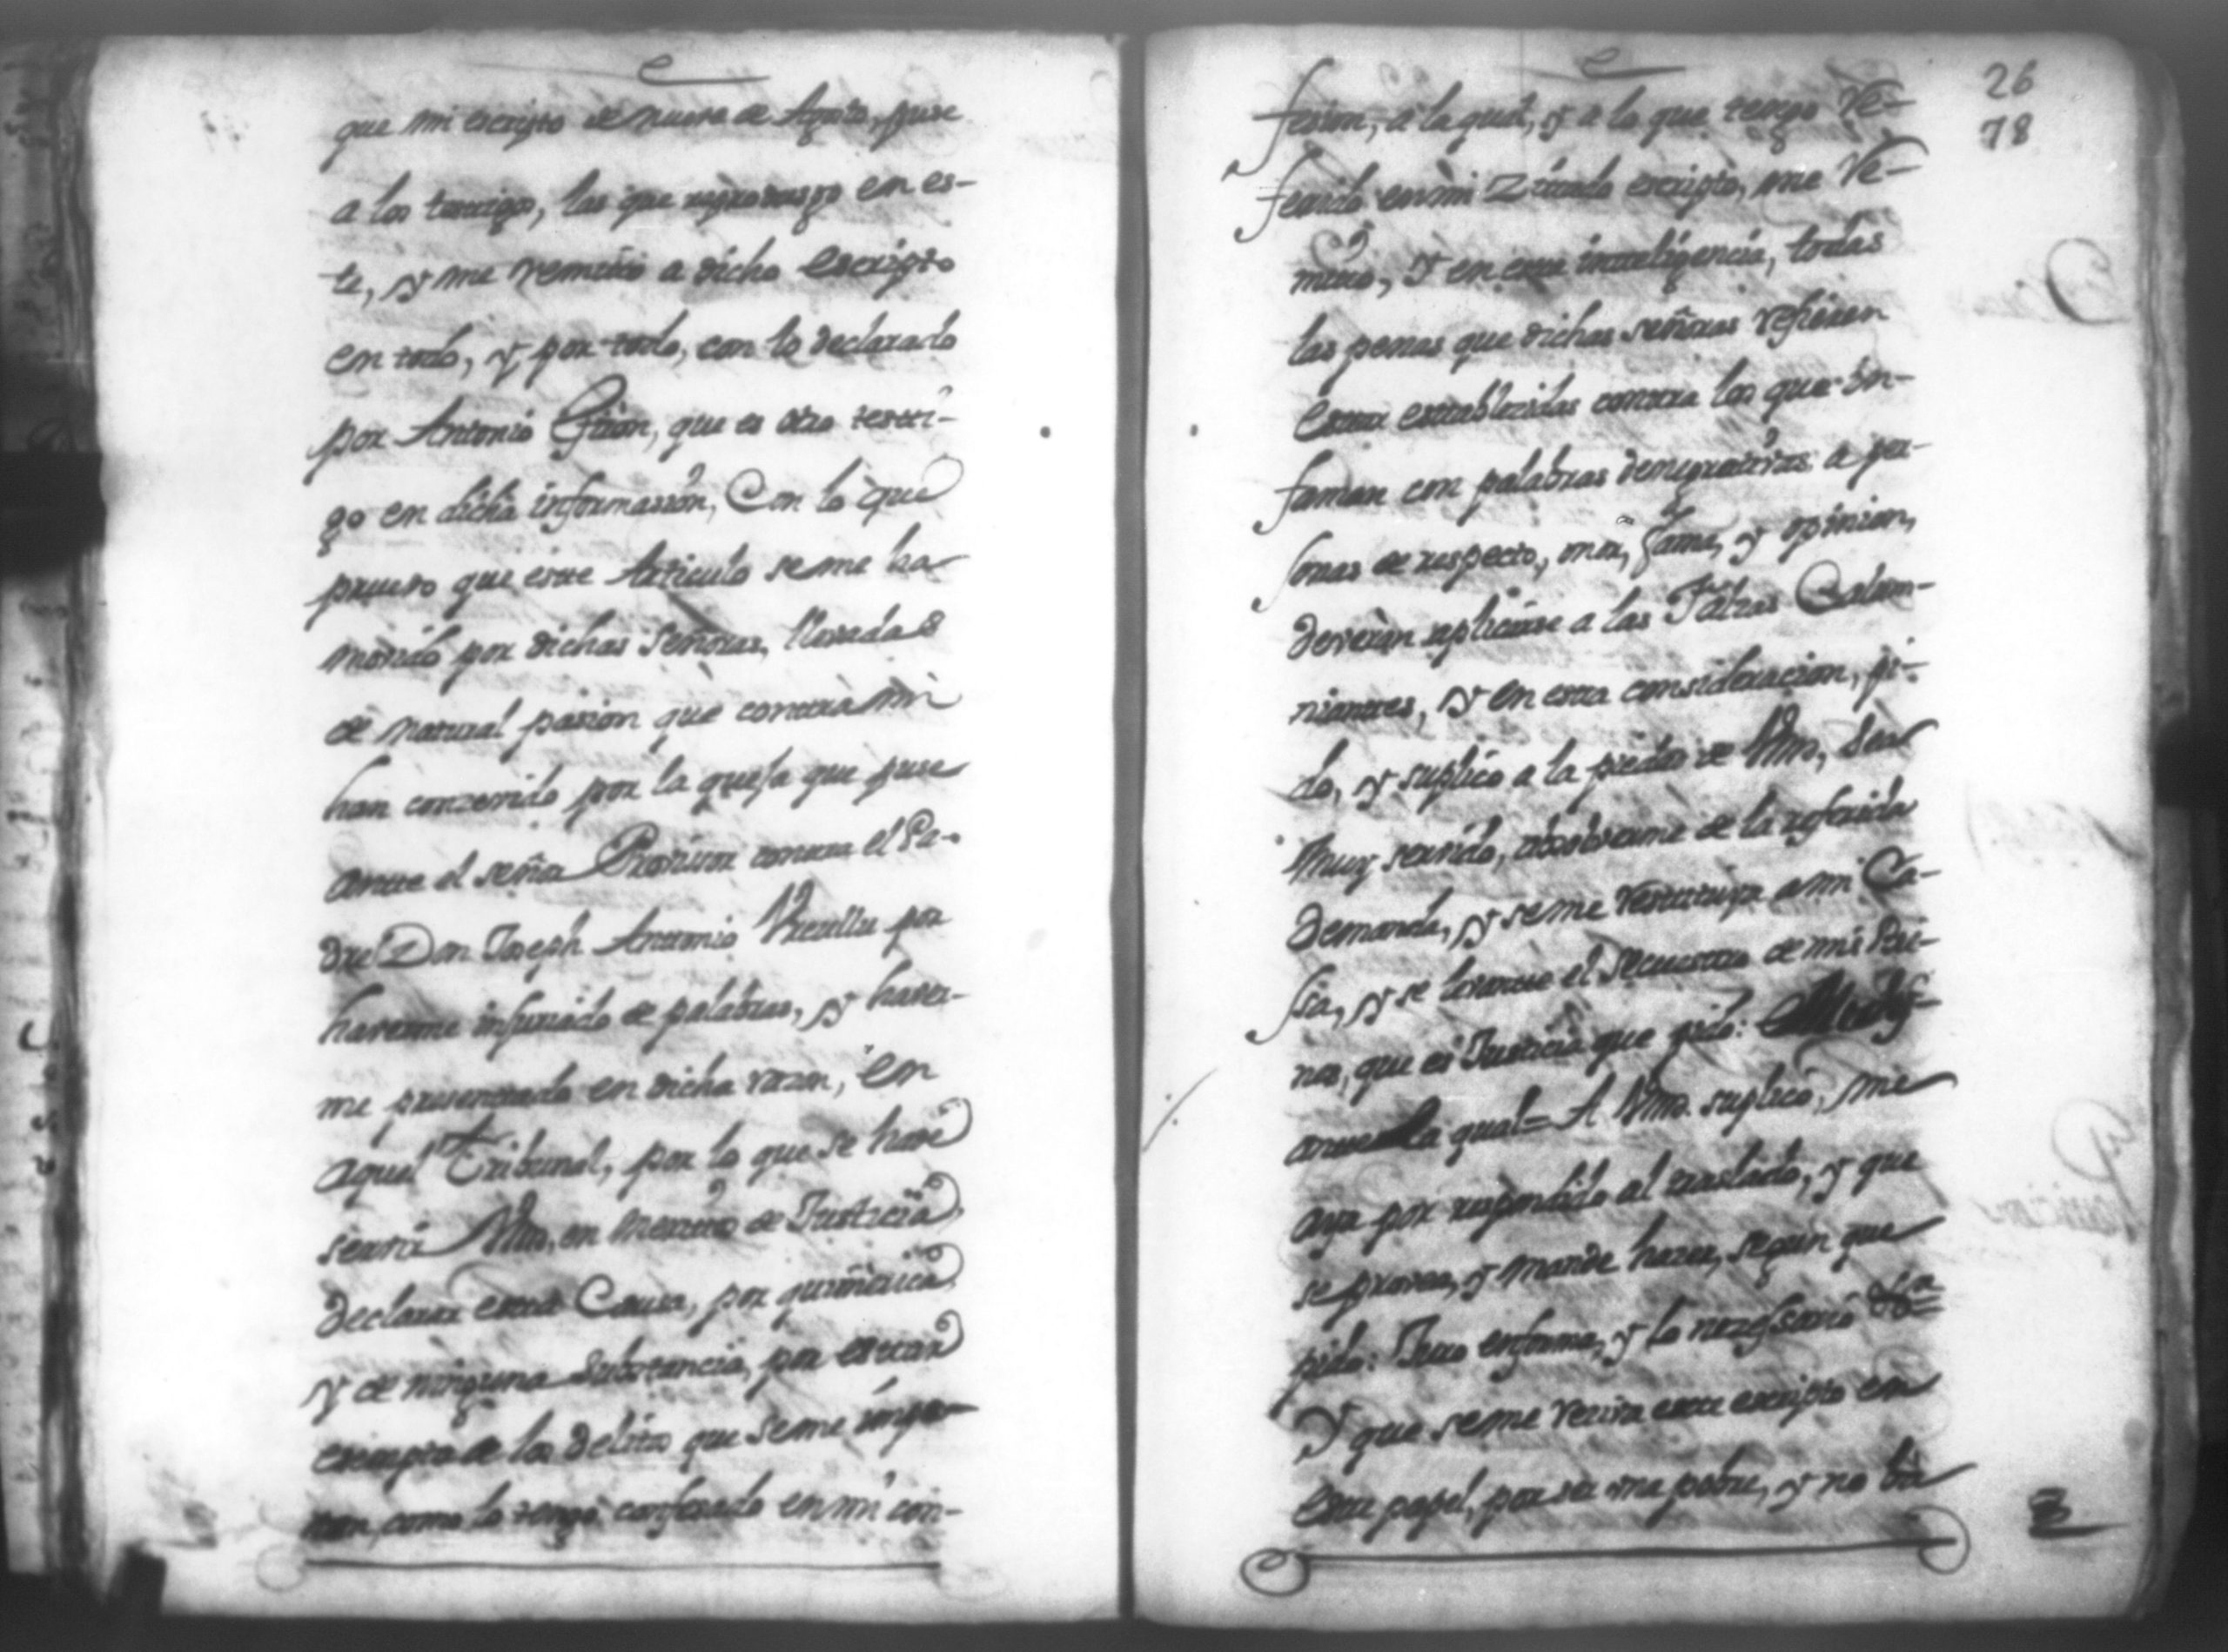 que mi escripto de nueve de Agosto, puse
a los testigos, las que reproduzgo en es-
te, y me remito a dicho escripto
en todo, y por todo, con lo declarado
por Antonio Giron, que es otro testi-
go en dicha informassion, Con lo que
pruevo que este Articulo se me ha
movido por dichas Señoras, llevadas
de natural passion que contra mi
han conzevido por la quexa que puse
ante el señor Provisor contra el Pa-
dre Don Joseph Antonio por
haverme injuriado de palabras, y haver-
me presentado en dicha razon, en
aquel Tribunal, por lo que se hade
servir Vmd. en meritos de Justicia,
declarar esta Causa, por
y de ninguna substancia, por estar
exempto de los delitos que se me impu-
tan, como lo tengo confesado en mi con-
26
78
fesion, a la qual, y a lo que tengo re-
ferido en mi Zitado escripto, me re-
mito, Y en esta inteligencia, todas
las penas que dichas señoras refieren
estar establezidas contra los que in-
faman con palabras denigrativas a per-
sonas de respecto, fama, y opinion,
deveran aplicarse a las Falzas Calum-
niantes, y en esta consideracion, pi-
do, y suplico a la piedad de Vmd, sea
muy servido, absolverme de la referida
Demanda, y se me restituya a mi Ca-
sa, y se levante el secuestro de mis
que es Justicia que pido:
la qual= A Vmd. suplico, me
aya por respondido al traslado, y que
se provea, y mande hazer, segun que
pido: Juro enforma, y lo nezessario &a=
Y que se me reciva este escripto en
este papel, por ser me pobre, y no